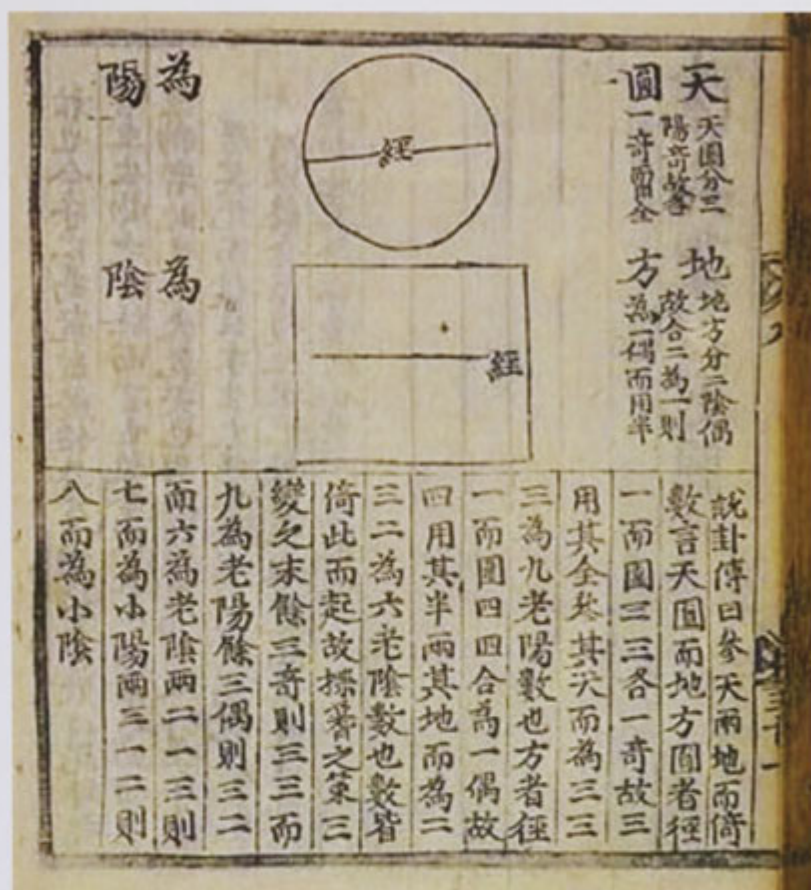 天
圓
天圓分三
陽奇故各
一奇而用全
地
方
地方分二陰偶
故合二為一則
為一偶而用半
經
經
為
陽
為
陰
說卦傳曰參天兩地而倚
數言天圓而地方圓者徑
一而圍三三各一奇故三
用其全叅其天而為三三
三為九老陽數也方者徑
一而圍四四合為一偶故
四用其半兩其地而為二
三二為六老陰數也數皆
倚此而起故揲蓍之第三
變之末餘三奇則三三而
九為老陽餘三偶則三二
而六為老陰兩二一三則
七而為小陽兩三一二則
八而為小陰